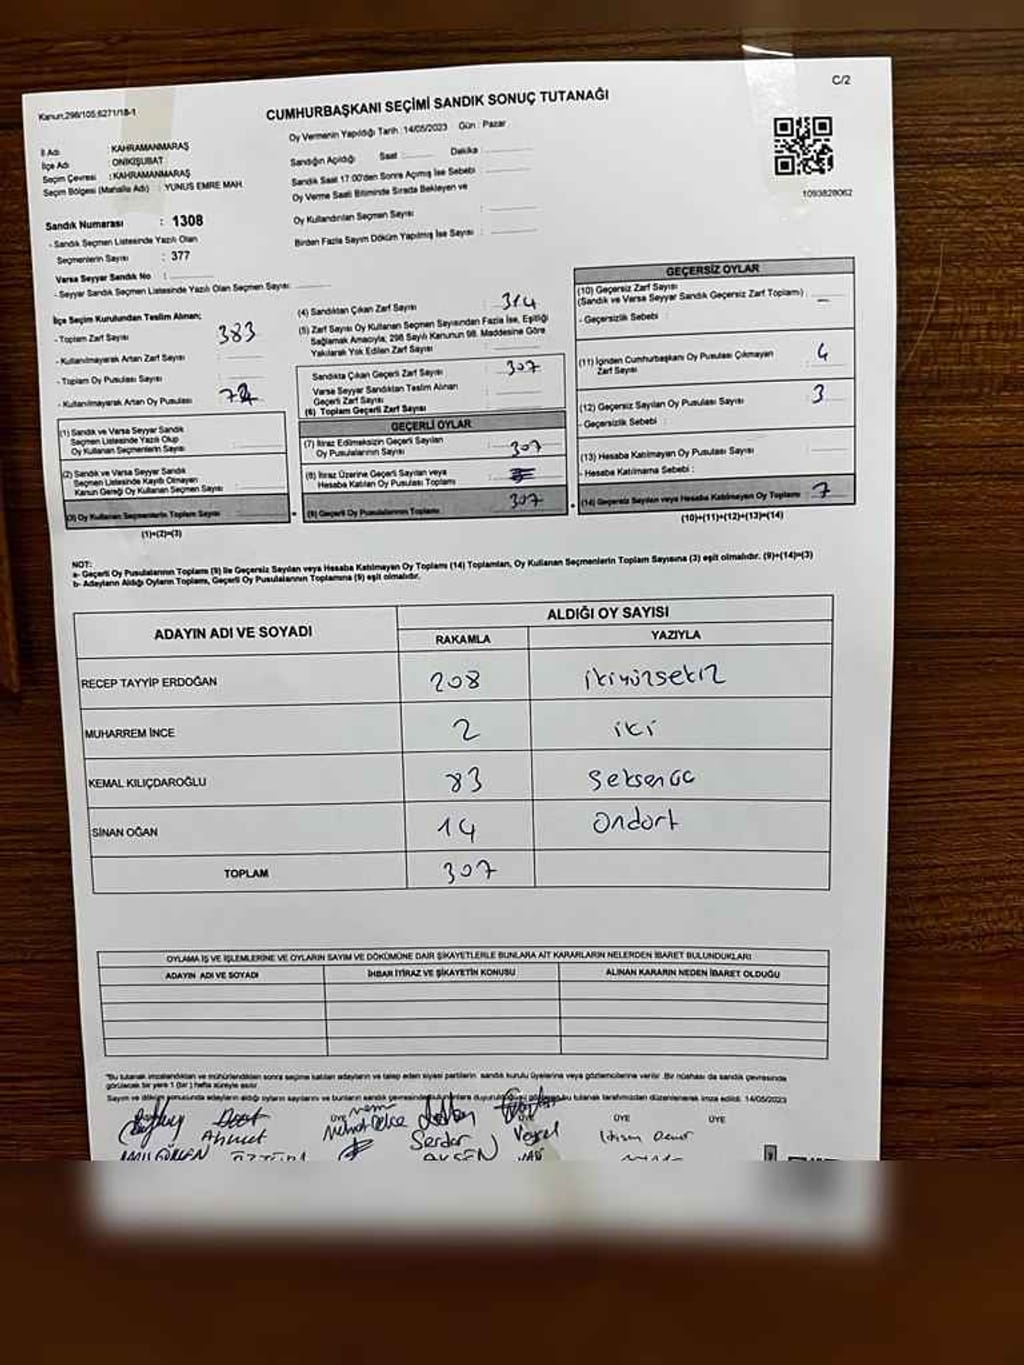 C/2
Kanun:298/105;6271/18-1
CUMHURBAŞKANI SEÇİMİ SANDIK SONUÇ TUTANAĞI
Oy Vermenin Yapıldığı Tarih : 14/05/2023 Gün : Pazar
İl Adı : KAHRAMANMARAŞ
İlçe Adı : ONİKİŞUBAT
Seçim Çevresi : KAHRAMANMARAŞ
Seçim Bölgesi (Mahalle Adı) : YUNUS EMRE MAH.
Sandığın Açıldığı Saat : Dakika :
Sandık Saat 17:00'den Sonra Açılmış İse Sebebi :
Oy Verme Saati Bitiminde Sırada Bekleyen ve
Oy Kullandırılan Seçmen Sayısı :
Birden Fazla Sayım Döküm Yapılmış İse Sayısı :
1093828062
Sandık Numarası : 1308
- Sandık Seçmen Listesinde Yazılı Olan
Seçmenlerin Sayısı : 377
Varsa Seyyar Sandık No :
- Seyyar Sandık Seçmen Listesinde Yazılı Olan Seçmen Sayısı:
İlçe Seçim Kurulundan Teslim Alınan;
- Toplam Zarf Sayısı : 383
- Kullanılmayarak Artan Zarf Sayısı :
- Toplam Oy Pusulası Sayısı :
- Kullanılmayarak Artan Oy Pusulası :
(1) Sandık ve Varsa Seyyar Sandık
Seçmen Listesinde Yazılı Olup
Oy Kullanan Seçmenlerin Sayısı :
(2) Sandık ve Varsa Seyyar Sandık
Seçmen Listesinde Kayıtlı Olmayan
Kanun Gereği Oy Kullanan Seçmen Sayısı :
(3) Oy Kullanan Seçmenlerin Toplam Sayısı
(1)+(2)=(3)
(4) Sandıktan Çıkan Zarf Sayısı : 314
(5) Zarf Sayısı Oy Kullanan Seçmen Sayısından Fazla İse, Eşitliği
Sağlamak Amacıyla; 298 Sayılı Kanunun 98. Maddesine Göre
Yakılarak Yok Edilen Zarf Sayısı :
Sandıkta Çıkan Geçerli Zarf Sayısı : 307
Varsa Seyyar Sandıktan Teslim Alınan
Geçerli Zarf Sayısı :
(6) Toplam Geçerli Zarf Sayısı :
GEÇERLİ OYLAR
(7) İtiraz Edilmeksizin Geçerli Sayılan
Oy Pusulalarının Sayısı : 307
(8) İtiraz Üzerine Geçerli Sayılan veya
Hesaba Katılan Oy Pusulası Toplamı :
(9) Geçerli Oy Pusulalarının Toplamı : 307
GEÇERSİZ OYLAR
(10) Geçersiz Zarf Sayısı
(Sandık ve Varsa Seyyar Sandık Geçersiz Zarf Toplamı) : –
- Geçersizlik Sebebi :
(11) İçinden Cumhurbaşkanı Oy Pusulası Çıkmayan
Zarf Sayısı : 4
(12) Geçersiz Sayılan Oy Pusulası Sayısı : 3
- Geçersizlik Sebebi :
(13) Hesaba Katılmayan Oy Pusulası Sayısı :
- Hesaba Katılmama Sebebi :
(14) Geçersiz Sayılan veya Hesaba Katılmayan Oy Toplamı : 7
(10)+(11)+(12)+(13)=(14)
NOT:
a- Geçerli Oy Pusulalarının Toplamı (9) ile Geçersiz Sayılan veya Hesaba Katılmayan Oy Toplamı (14) Toplamları, Oy Kullanan Seçmenlerin Toplam Sayısına (3) eşit olmalıdır. (9)+(14)=(3)
b- Adayların Aldığı Oyların Toplamı, Geçerli Oy Pusulalarının Toplamına (9) eşit olmalıdır.
ADAYIN ADI VE SOYADI ALDIĞI OY SAYISI
RAKAMLA YAZIYLA
RECEP TAYYİP ERDOĞAN 208 ikiyüzsekiz
MUHARREM İNCE 2 iki
KEMAL KILIÇDAROĞLU 83 seksenüç
SİNAN OĞAN 14 Ondört
TOPLAM 307
OYLAMA İŞ VE İŞLEMLERİNE VE OYLARIN SAYIM VE DÖKÜMÜNE DAİR ŞİKAYETLERLE BUNLARA AİT KARARLARIN NELERDEN İBARET BULUNDUKLARI
ADAYIN ADI VE SOYADI İHBAR İTİRAZ VE ŞİKAYETİN KONUSU ALINAN KARARIN NEDEN İBARET OLDUĞU
"Bu tutanak imzalandıktan ve mühürlendikten sonra seçime katılan adayların ve talep eden siyasi partilerin sandık kurulu üyelerine veya gözlemcilerine verilir. Bir nüshası da sandık çevresinde
görülecek bir yere 1 (bir) hafta süreyle asılır.
14/05/2023
ÜYE ÜYE ÜYE
Ahmet Serdar Veysel
AKŞEN